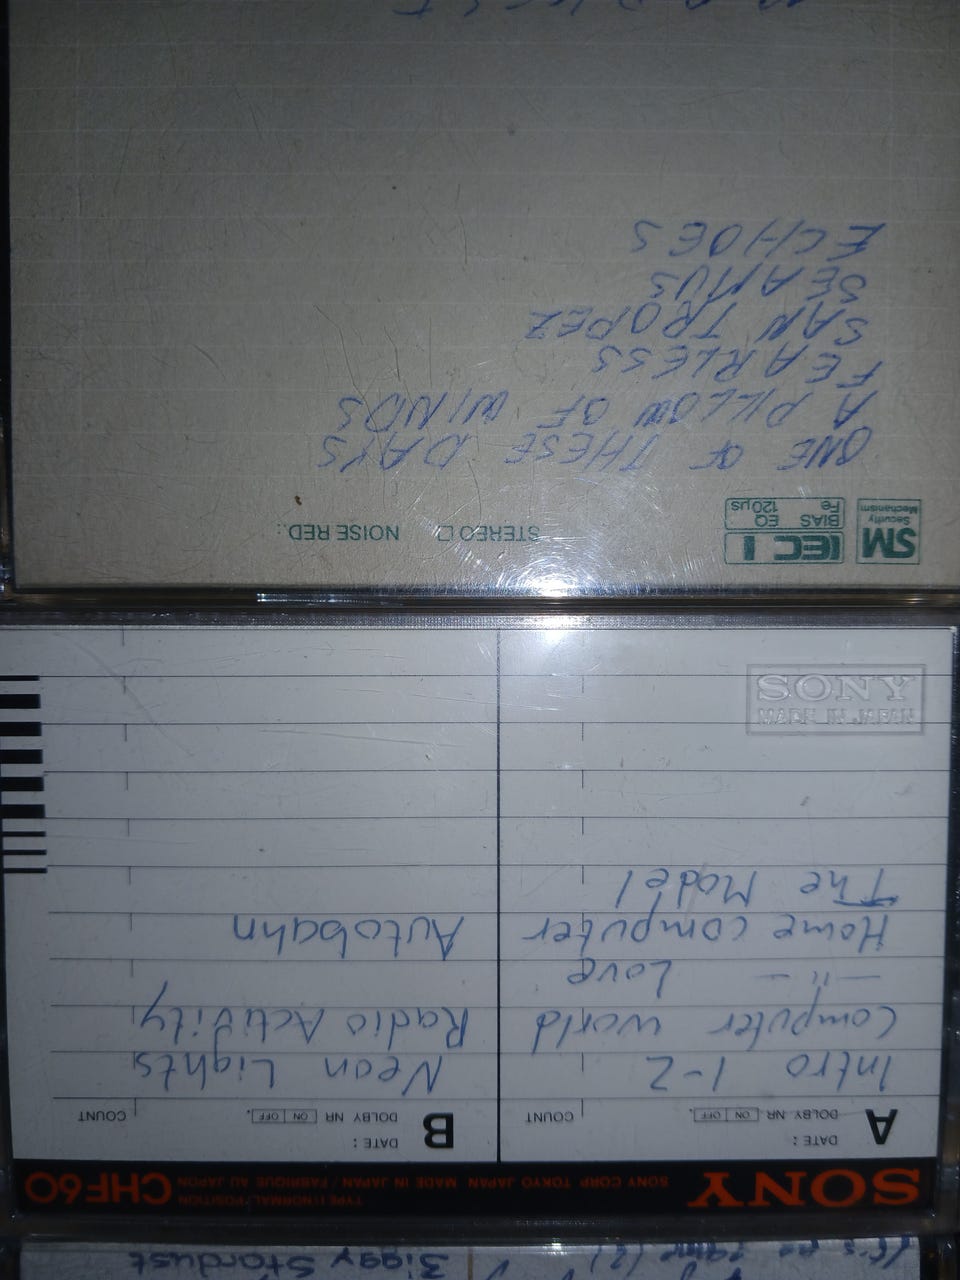 It's no game (2)
Ziggy Stardust
SONY
TYPE I (NORMAL) POSITION
SONY CORP TOKYO JAPAN MADE IN JAPAN / FABRIQUE AU JAPON
CHF60
A
DATE:
DOLBY NR ON OFF . COUNT
Intro 1-2
Computer world
—"— Love
Home computer
The Model
B
DATE:
DOLBY NR ON OFF . COUNT
Neon Lights
Radio Activity
Autobahn
SONY
MADE IN JAPAN
SM
Security
Mechanism
IEC I
BIAS EQ
Fe 120µs
STEREO NOISE RED.:
ONE OF THESE DAYS
A PILLOW OF WINDS
FEARLESS
SAN TROPEZ
SEAMUS
ECHOES